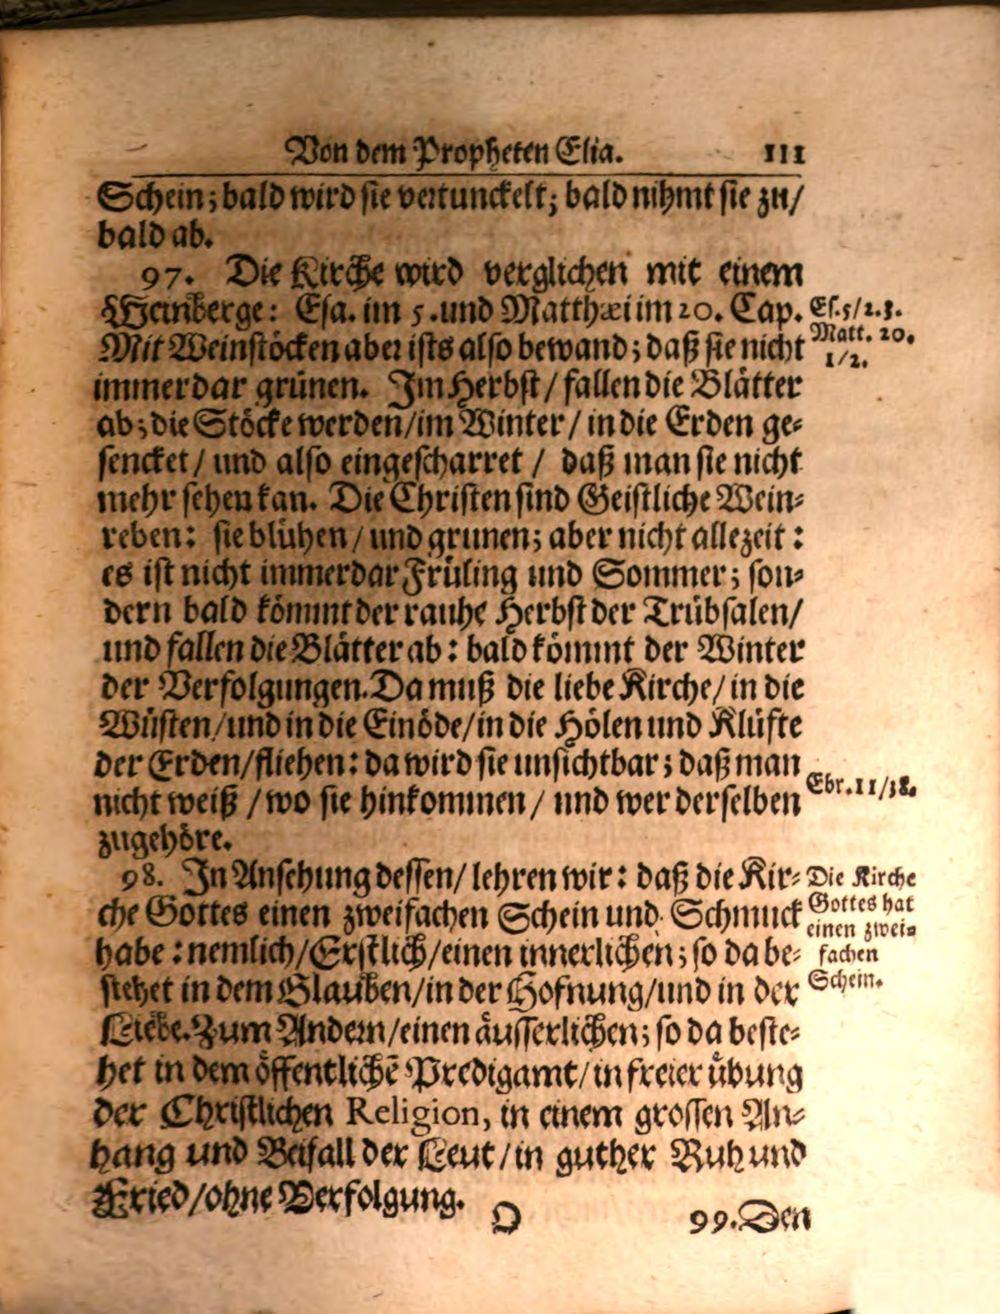 Von dem Propheten Elia. 111
Schein; bald wird sie vertunckelt; bald nihmt sie zu/
bald ab.
97. Die Kirche wird verglichen mit einem
Weinberge: Esa. im 5. und Matthæi im 20. Cap.
Es. 5/1.2.
Mit Weinstöcken aber ists also bewand; daß sie nicht
Matt. 20.
1/2.
immerdar grünen. Im Herbst/ fallen die Blätter
ab; die Stöcke werden/im Winter/ in die Erden ge-
sencket/ und also eingescharret / daß man sie nicht
mehr sehen kan. Die Christen sind Geistliche Wein-
reben: sie blühen/ und grunen; aber nicht allezeit:
es ist nicht immerdar Früling und Sommer; son-
dern bald kömmt der rauhe Herbst der Trübsalen/
und fallen die Blätter ab: bald kömmt der Winter
der Verfolgungen. Da muß die liebe Kirche/ in die
Wüsten/und in die Einöde/in die Hölen und Klüfte
der Erden/fliehen: da wird sie unsichtbar; daß man
nicht weiß /wo sie hinkommen/ und wer derselben
Ebr. 11/38.
zugehöre.
98. In Ansehung dessen/ lehren wir: daß die Kir-
Die Kirche
che Gottes einen zweifachen Schein und Schmuck
Gottes hat
einen zwei-
habe: nemlich/Erstlich/einen innerlichen; so da be-
fachen
stehet in dem Glauben/in der Hofnung/und in der
Schein.
Liebe. Zum Andern/einen äusserlichen; so da beste-
het in dem öffentlichē Predigamt/in freier übung
der Christlichen Religion, in einem grossen An-
hang und Beifall der Leut/in guther Ruh und
Fried/ohne Verfolgung.
O 99. Den